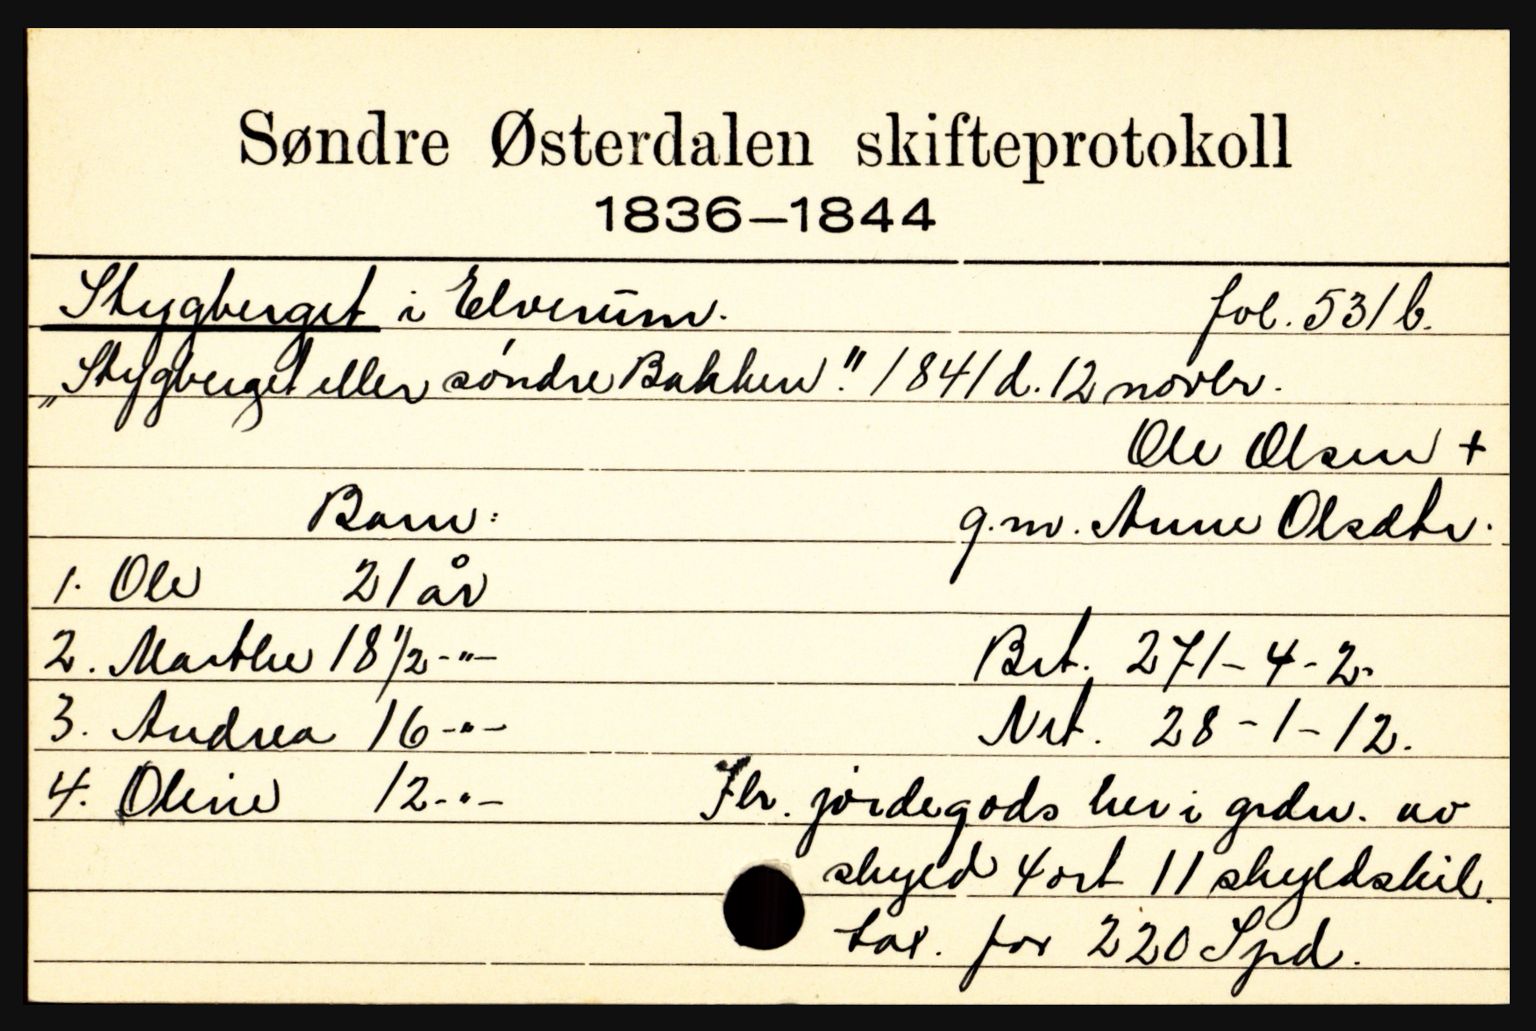 Søndre Østerdalen skifteprotokoll
1836–1844
Stygberget i Elverum. fol. 531 b.
„Stygberget eller søndre Bakken". 1841 d. 12 novbr.
Ole Olsen +
Barn: g.m. Anne Olsdtr.
1. Ole 21 år
2. Marthe 18 1/2 -"- Brt. 271-4-2.
3. Andrea 16 -"- Nrt. 28-1-12.
4. Oline 12 -"- Flr. jordegods her i grdn. av
skyld 4 ort 11 skyldskil.
tax. for 220 Spd.